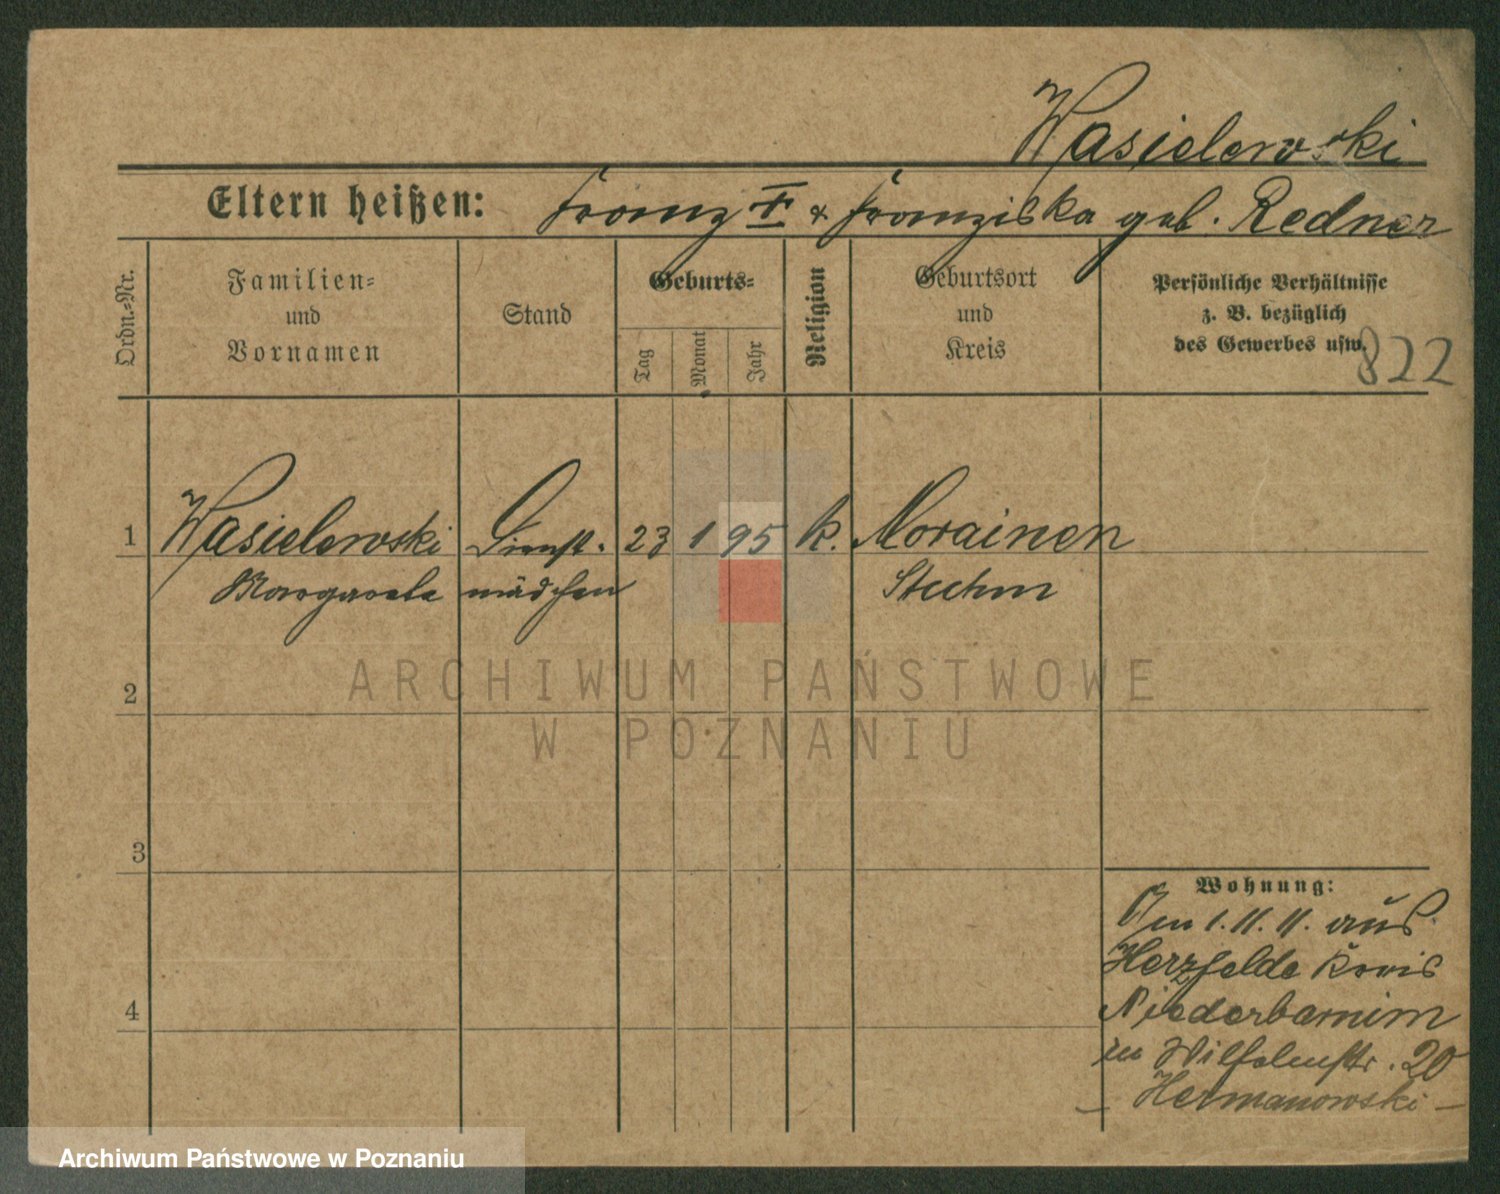 Wasielewski
Eltern heißen: Franz I & Franziska geb. Redner
Ordn.=Nr.
Familien=
und
Vornamen
Stand
Geburts=
Tag
Monat
Jahr
Religion
Geburtsort
und
Kreis
Persönliche Verhältnisse
z. B. bezüglich
des Gewerbes usw.
822
1 Wasielewski Dienst- 23 1 95 k. Morainen
Margarete mädchen Stuhm
2
3
4
Wohnung:
Am 1.11.11. aus
Herzfelde Kreis
Niederbarnim
in Wilhelmstr. 20
– Hermanowski –
ARCHIWUM PAŃSTWOWE
W POZNANIU
Archiwum Państwowe w Poznaniu